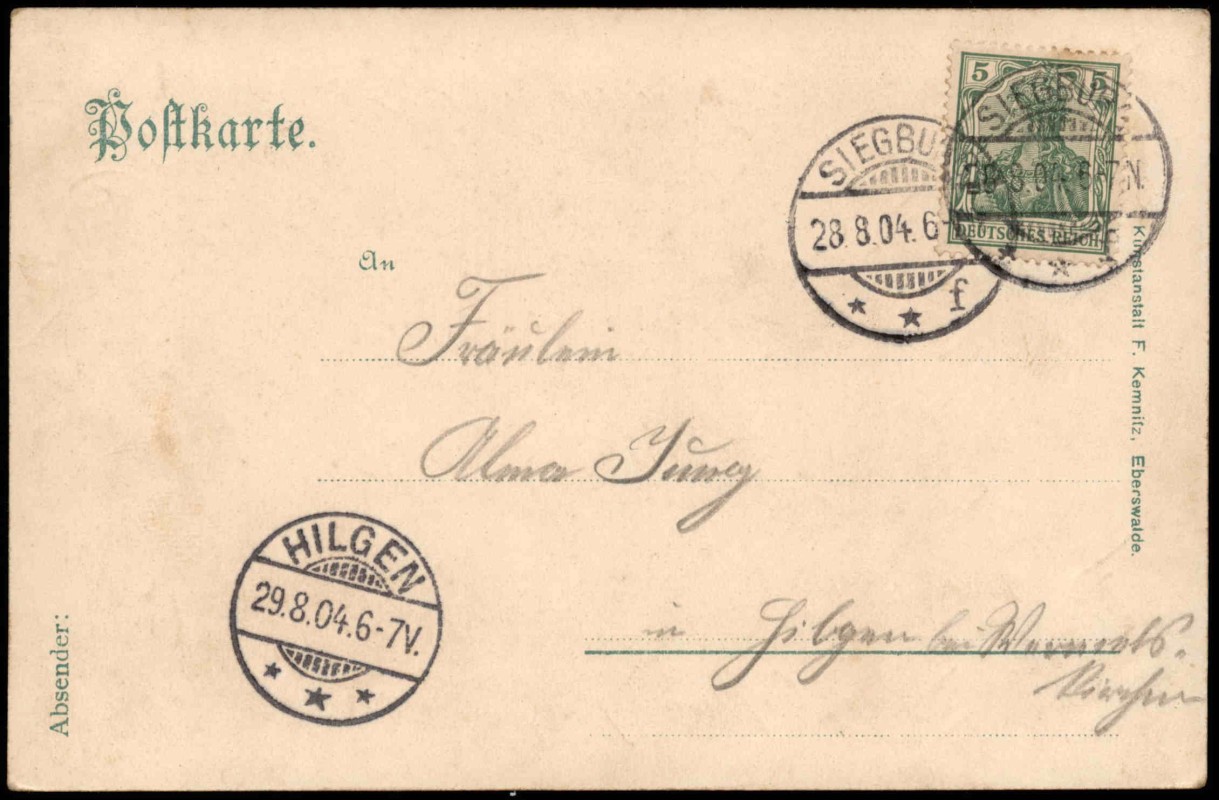 Postkarte.
5 5
SIEGBURG
28.8.04.6-7N.
DEUTSCHES REICH
* * f
SIEGBU
28.8.04.6-
* * f
An
Fräulein
Alma Jung
in Hilgen bei Wermels-
kirchen
HILGEN
29.8.04.6-7V.
* * *
Absender:
Kunstanstalt F. Kemnitz, Eberswalde.